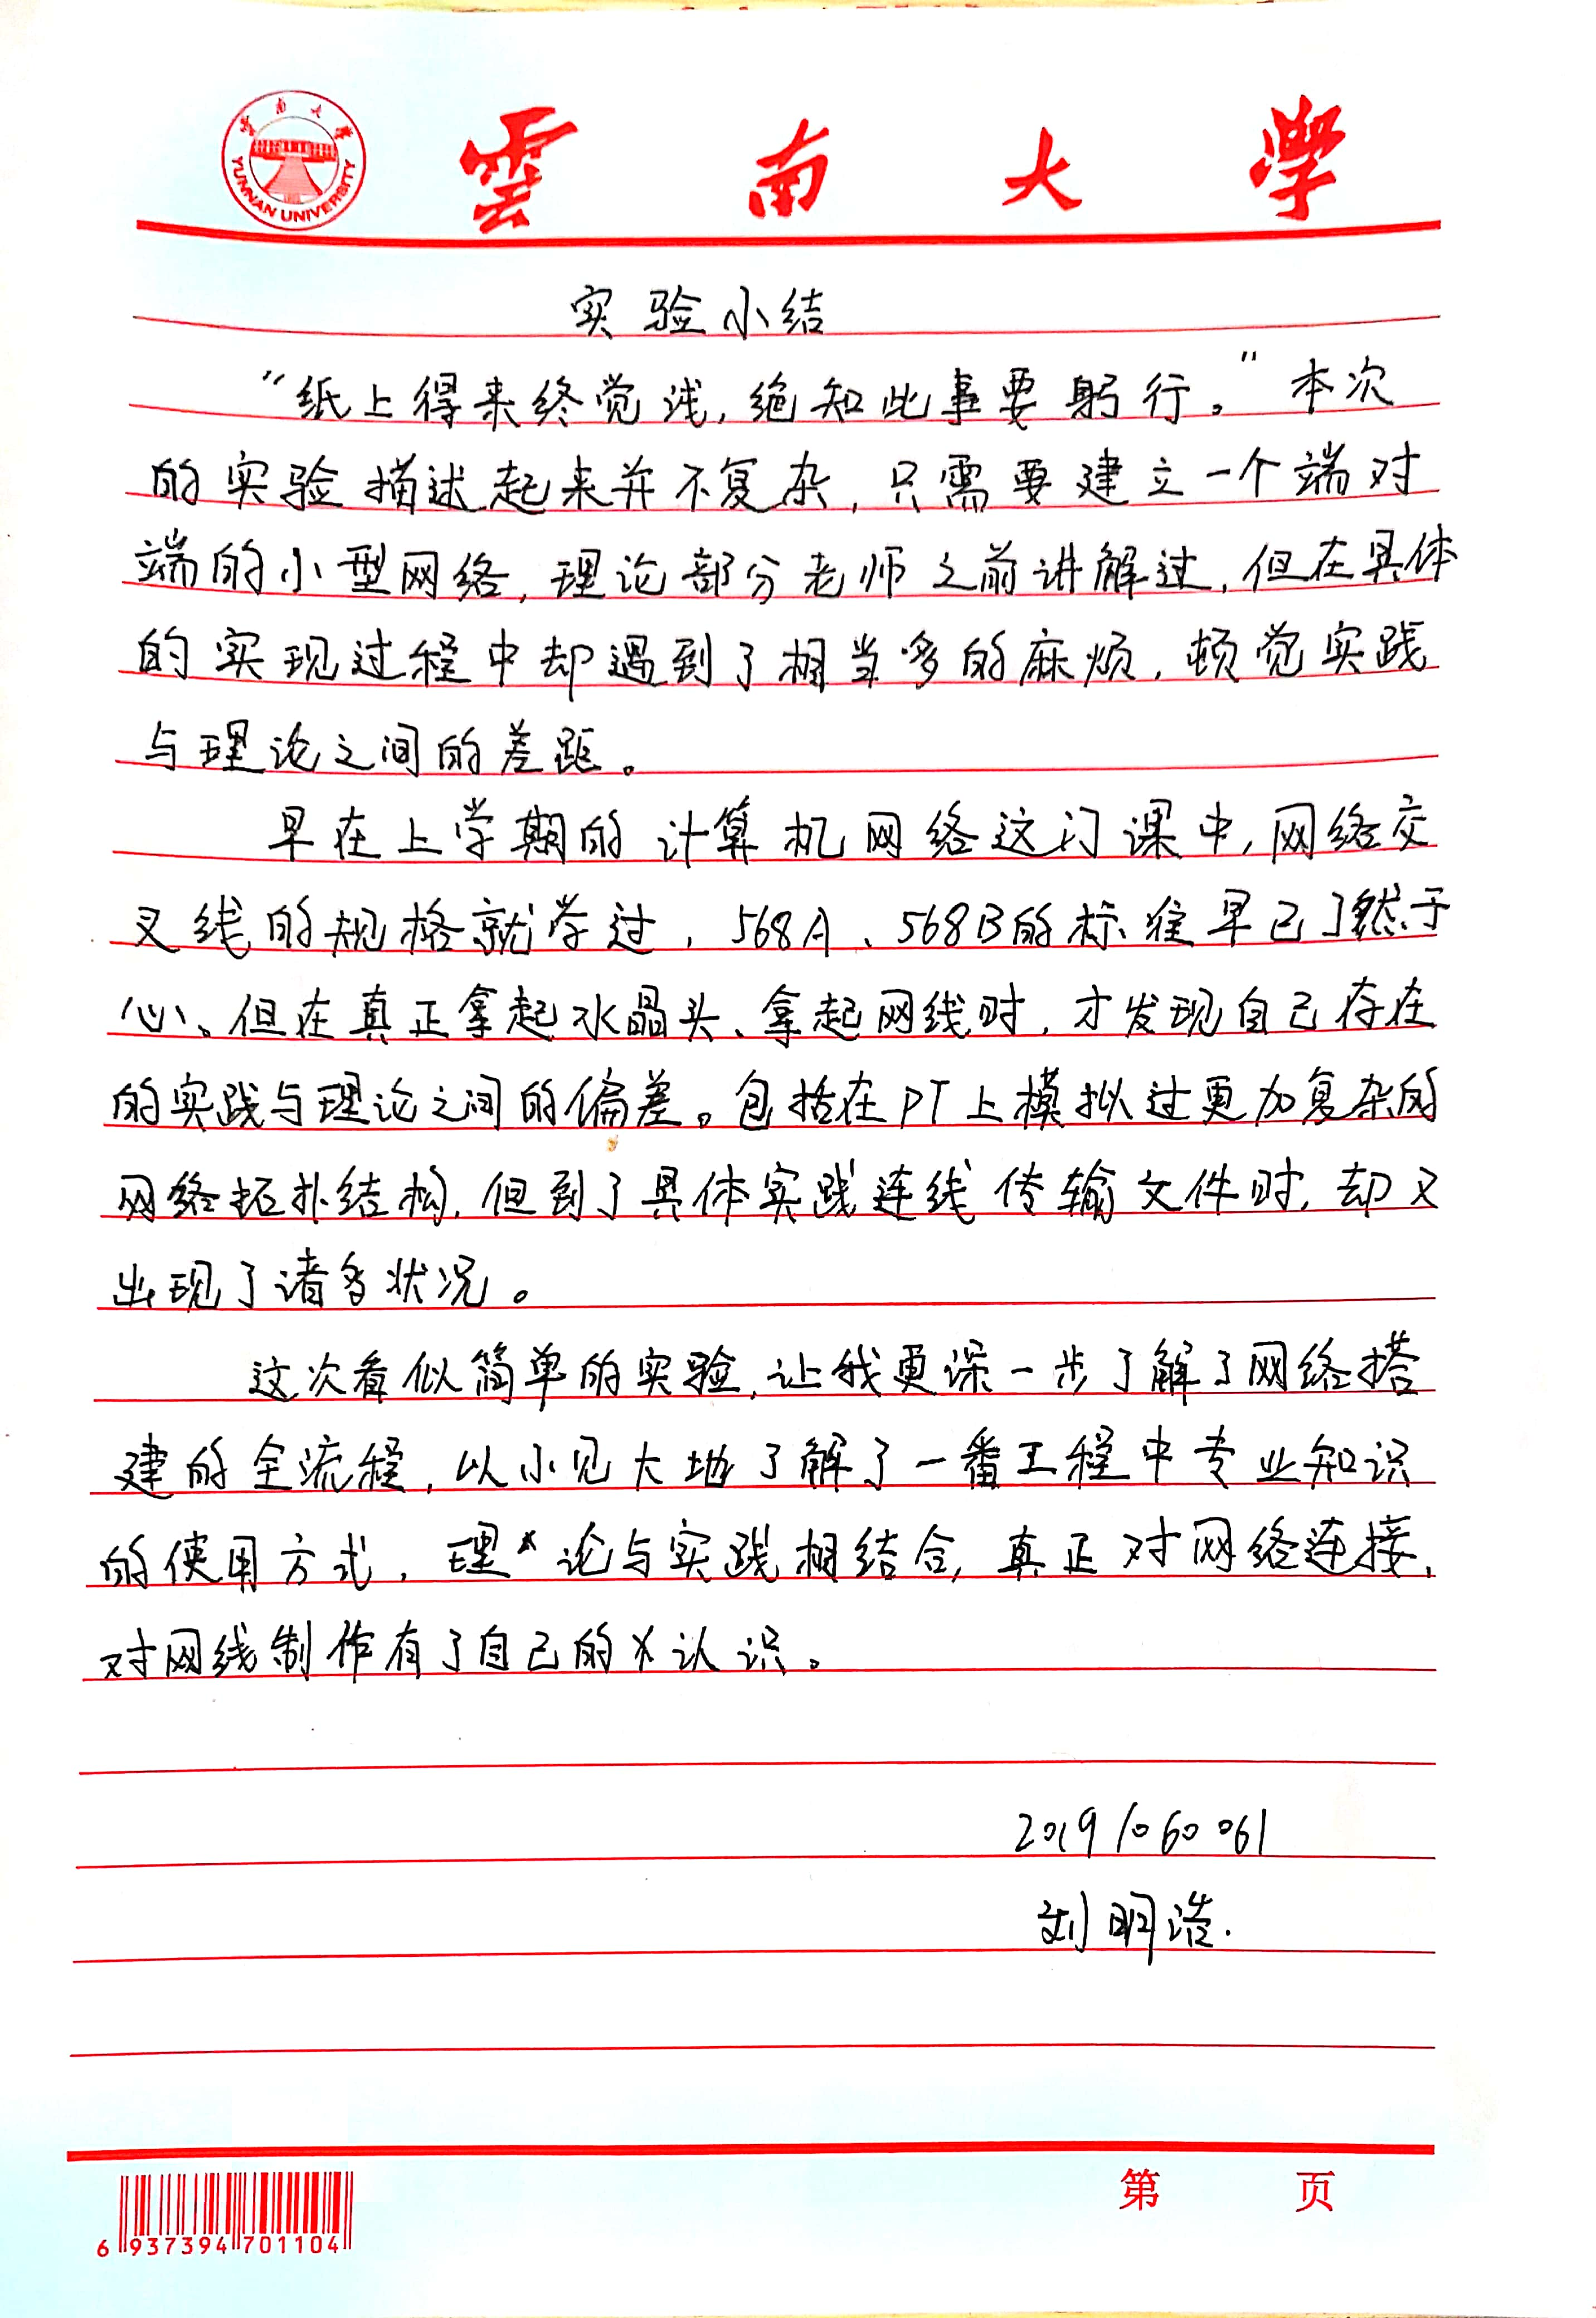 雲南大學
YUNNAN UNIVERSITY
实验小结
“纸上得来终觉浅,绝知此事要躬行。”本次
的实验描述起来并不复杂,只需要建立一个端对
端的小型网络,理论部分老师之前讲解过,但在具体
的实现过程中却遇到了相当多的麻烦,顿觉实践
与理论之间的差距。
早在上学期的计算机网络这门课中,网络交
叉线的规格就学过,568A、568B的标准早已了然于
心、但在真正拿起水晶头、拿起网线时,才发现自己存在
的实践与理论之间的偏差。包括在PT上模拟过更加复杂的
网络拓扑结构,但到了具体实践连线传输文件时,却又
出现了诸多状况。
这次看似简单的实验,让我更深一步了解了网络搭
建的全流程,以小见大地了解了一番工程中专业知识
的使用方式,理论与实践相结合,真正对网络连接,
对网线制作有了自己的认识。
20191060061
刘明浩.
第 页
6 937394 701104